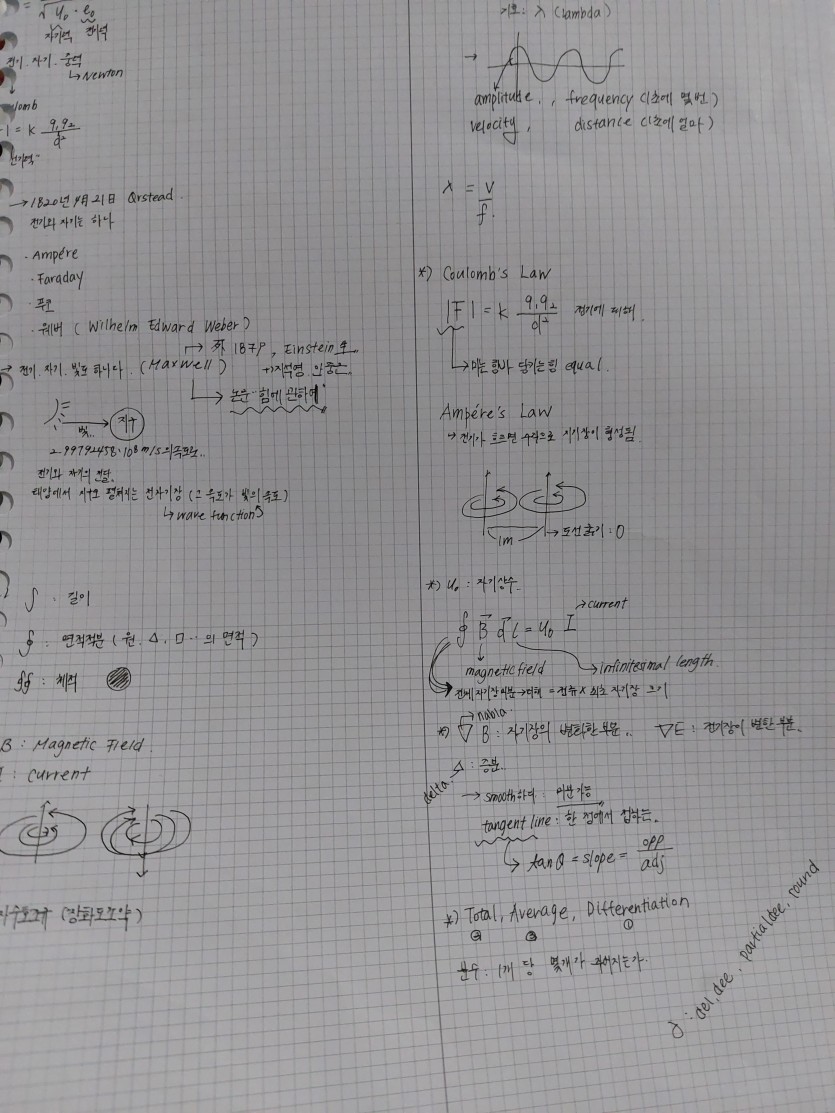 = √u₀·e₀
자기력 전기력
전기·자기·중력
↳ Newton
lomb
| = k q₁q₂/d²
전기력
→ 1820년 4月 21日 Qrstead.
전기와 자기는 하나
· Ampére
· Faraday
· 푸코
· 웨버 ( Wilhelm Edward Weber)
→ 전기. 자기. 빛도 하나다. (Maxwell)
1879, Einstein
↳ 논문 "힘에 관하여"
빛.. → 지구
2.99792458·10⁸ m/s의 속도로..
전기와 자기의 전달.
태양에서 지구로 펼쳐지는 전자기장 (그 속도가 빛의 속도)
↳ wave functions
∫ : 길이
∮ : 면적적분 ( 원. △. □.. 의 면적 )
∯ : 체적
B : Magnetic Field.
I : current
기호: λ (lambda)
→
amplitude., frequency (1초에 몇번)
velocity, distance (1초에 얼마)
λ = v/f.
*) Coulomb's Law
|F| = k q₁q₂/d² 전기에 의해.
↳ 미는 힘과 당기는 힘 equal.
Ampére's Law
→ 전기가 흐르면 수직으로 자기장이 형성됨.
1m → 도선 굵기 : 0
*) u₀ : 자기상수.
∮ B⃗ d⃗l = u₀ I → current
magnetic field → infinitesmal length.
nabla.
*) ▽ B : 자기장의 변화한 부분.. ▽E : 전기장이 변한 부분.
delta. △ : 증분..
→ smooth하다 : 미분가능
tangent line : 한 점에서 접하는.
↳ tanθ = slope = opp/adj
*) Total, Average, Differentiation
② ③ ①
분수 : 1개 당 몇개가
∂ : del, dee, partial dee, round